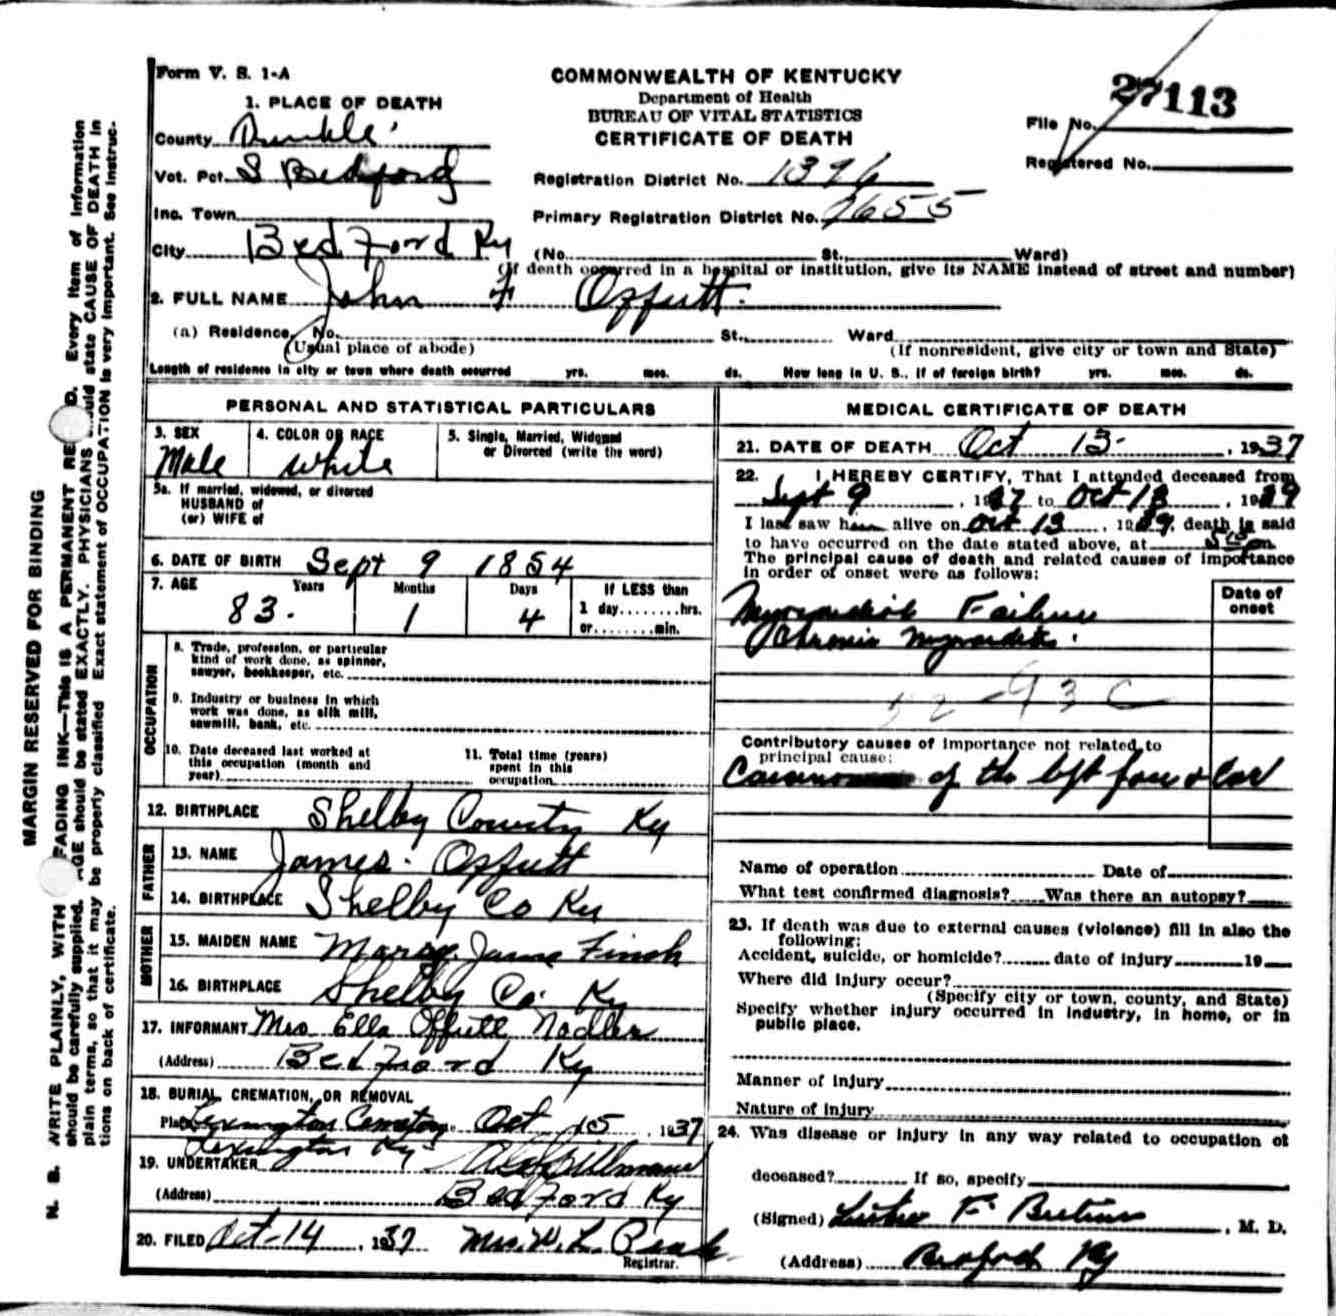 Form V. S. 1-A
COMMONWEALTH OF KENTUCKY
Department of Health
BUREAU OF VITAL STATISTICS
CERTIFICATE OF DEATH
27113
File No.
Registered No.
1. PLACE OF DEATH
County
Vot. Pct. S Bedford
Inc. Town
City Bedford Ky
Registration District No. 1396
Primary Registration District No. 7655
(No. St., Ward)
(If death occurred in a hospital or institution, give its NAME instead of street and number)
2. FULL NAME John F Offutt
(a) Residence, No. St., Ward
(Usual place of abode) (If nonresident, give city or town and State)
Length of residence in city or town where death occurred yrs. mos. ds. How long in U. S., if of foreign birth? yrs. mos. ds.
PERSONAL AND STATISTICAL PARTICULARS
3. SEX Male
4. COLOR OR RACE White
5. Single, Married, Widowed or Divorced (write the word)
5a. If married, widowed, or divorced
HUSBAND of
(or) WIFE of
6. DATE OF BIRTH Sept 9 1854
7. AGE Years Months Days If LESS than
83. 1 4 1 day........hrs.
or........min.
OCCUPATION
8. Trade, profession, or particular
kind of work done, as spinner,
sawyer, bookkeeper, etc.
9. Industry or business in which
work was done, as silk mill,
sawmill, bank, etc.
10. Date deceased last worked at
this occupation (month and
year)
11. Total time (years)
spent in this
occupation
12. BIRTHPLACE Shelby County Ky
FATHER
13. NAME James Offutt
14. BIRTHPLACE Shelby Co Ky
MOTHER
15. MAIDEN NAME Mary Jane Finch
16. BIRTHPLACE Shelby Co. Ky
17. INFORMANT Mrs Ella Offutt Nadler
(Address) Bedford Ky
18. BURIAL, CREMATION, OR REMOVAL
Place Lexington Cemetery. Oct 15, 1937
Lexington Ky
19. UNDERTAKER
(Address) Bedford Ky
20. FILED Oct-14, 1937 Mrs. W. L. Peak
Registrar.
MEDICAL CERTIFICATE OF DEATH
21. DATE OF DEATH Oct 13-, 1937
22. I HEREBY CERTIFY, That I attended deceased from
Sept 9, 1937 to Oct 13, 19
I last saw him alive on Oct 13, 19 death is said
to have occurred on the date stated above, at
The principal cause of death and related causes of importance
in order of onset were as follows:
Date of
onset
Myocardial Failure
Chronic Myocarditis
93 C
Contributory causes of importance not related to
principal cause:
Carcinoma of the left face & ear
Name of operation Date of
What test confirmed diagnosis? Was there an autopsy?
23. If death was due to external causes (violence) fill in also the
following:
Accident, suicide, or homicide? date of injury 19
Where did injury occur?
(Specify city or town, county, and State)
Specify whether injury occurred in industry, in home, or in
public place.
Manner of injury
Nature of injury
24. Was disease or injury in any way related to occupation of
deceased? If so, specify
(Signed) F. M. D.
(Address) Bedford Ky
MARGIN RESERVED FOR BINDING
N. B. WRITE PLAINLY, WITH FADING INK—THIS IS A PERMANENT RECORD. Every item of information
should be carefully supplied. AGE should be stated EXACTLY. PHYSICIANS should state CAUSE OF DEATH in
plain terms, so that it may be properly classified. Exact statement of OCCUPATION is very important. See instruc-
tions on back of certificate.